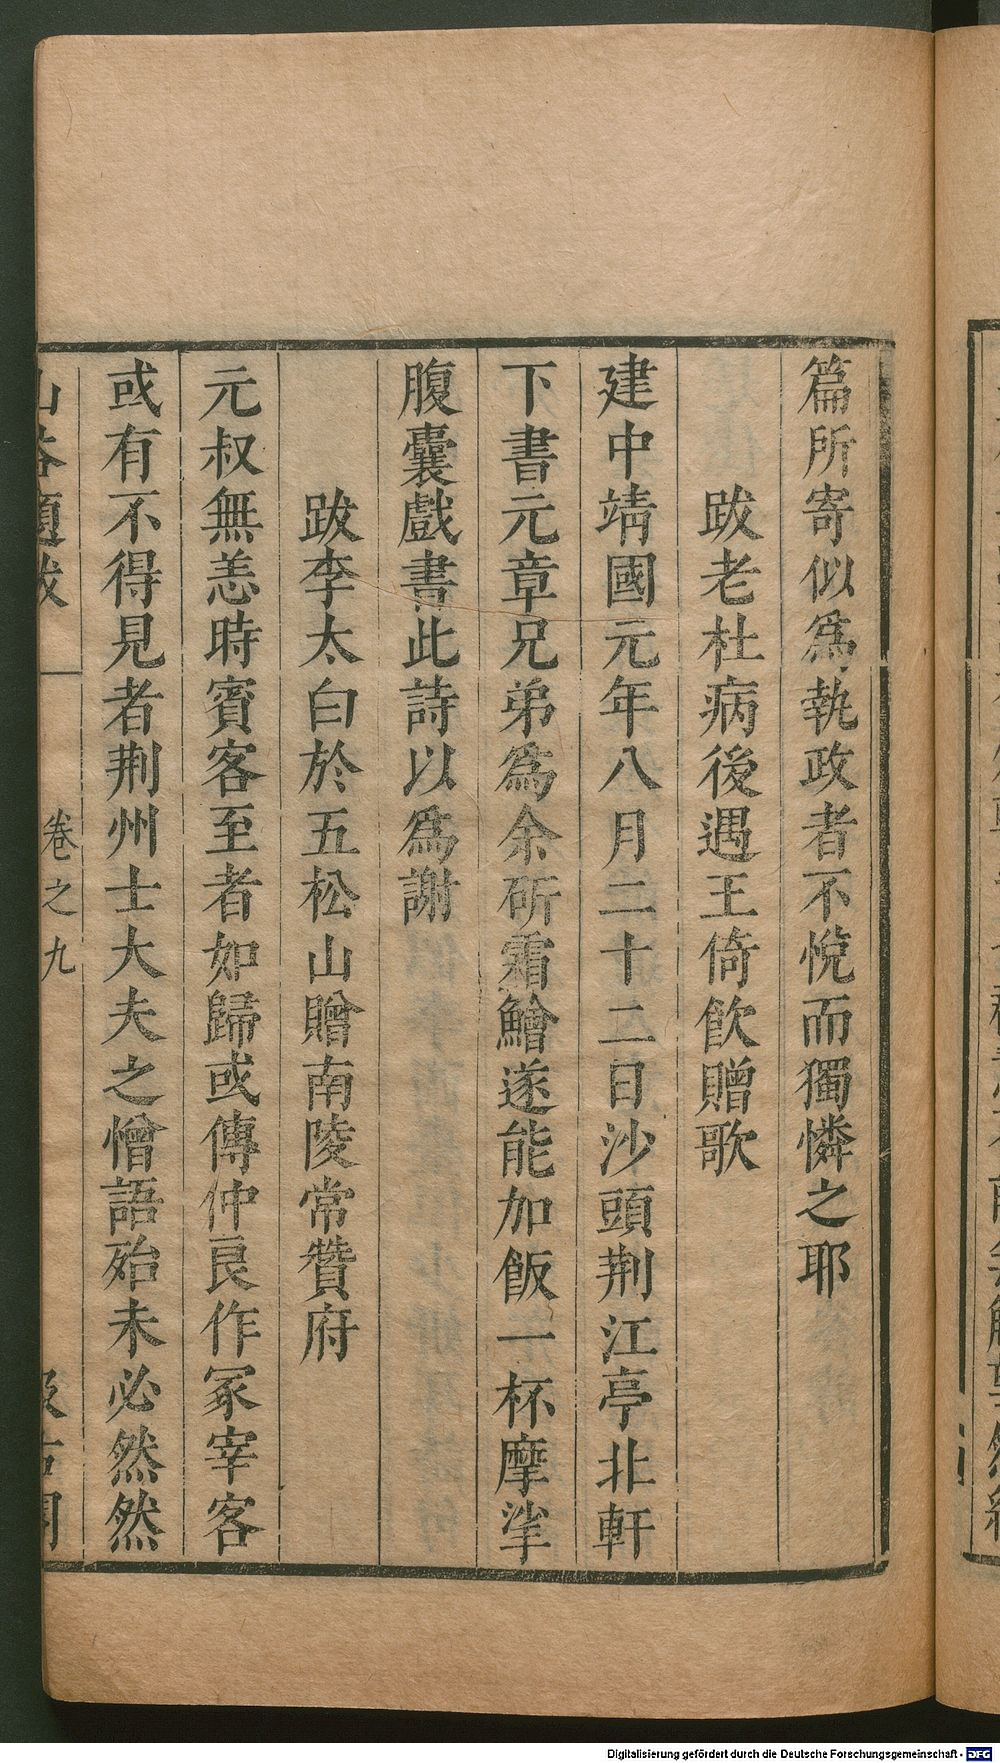 篇所寄似爲執政者不悅而獨憐之耶
跋老杜病後遇王倚飮贈歌
建中靖國元年八月二十二日沙頭荆江亭北軒
下書元章兄弟爲余斫霜鱠遂能加飯一杯摩挲
腹囊戲書此詩以爲謝
跋李太白於五松山贈南陵常贊府
元叔無恙時賓客至者如歸或傳仲良作冢宰客
或有不得見者荆州士大夫之憎語殆未必然然
山谷題跋 卷之九 汲古閣
Digitalisierung gefördert durch die Deutsche Forschungsgemeinschaft - DFG